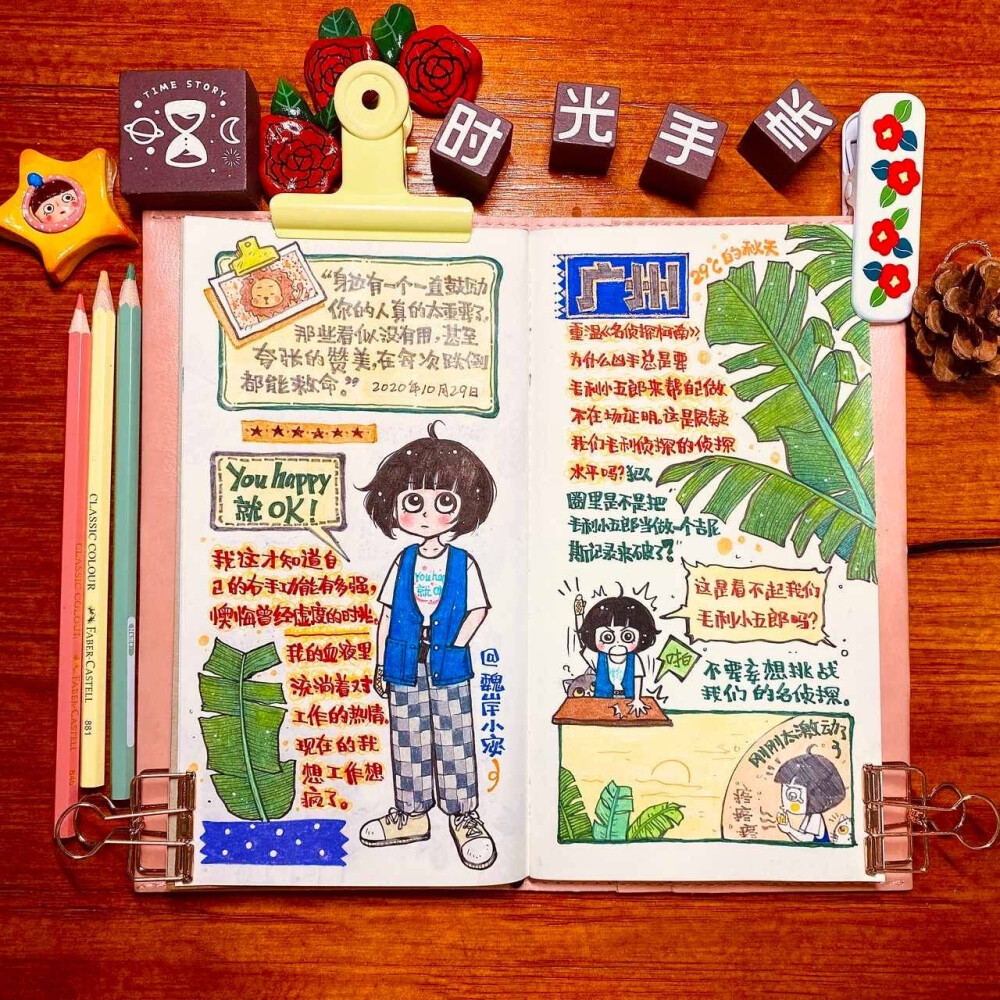 TIME STORY
时光手帐
“身边有一个一直鼓励
你的人真的太重要了,
那些看似没有用,甚至
夸张的赞美,在每次跌倒
都能救命。”
2020年10月29日
You happy
就OK!
我这才知道自
己的右手功能有多强,
懊悔曾经虚度的时光。
我的血液里
流淌着对
工作的热情。
现在的我
想工作想
疯了。
You hap
就OK
@魏岸小宓
CLASSIC COLOUR
FABER-CASTELL
881
CLASSIC COLOUR
FABER-CASTELL
广州
29℃的秋天
重温《名侦探柯南》,
为什么凶手总是要
毛利小五郎来帮自己做
不在场证明,这是质疑
我们毛利侦探的侦探
水平吗?犯人
圈里是不是把
毛利小五郎当做一个吉尼
斯记录来破了?
这是看不起我们
毛利小五郎吗?
啪
不要妄想挑战
我们的名侦探。
刚刚太激动了
疼疼疼
疼疼疼